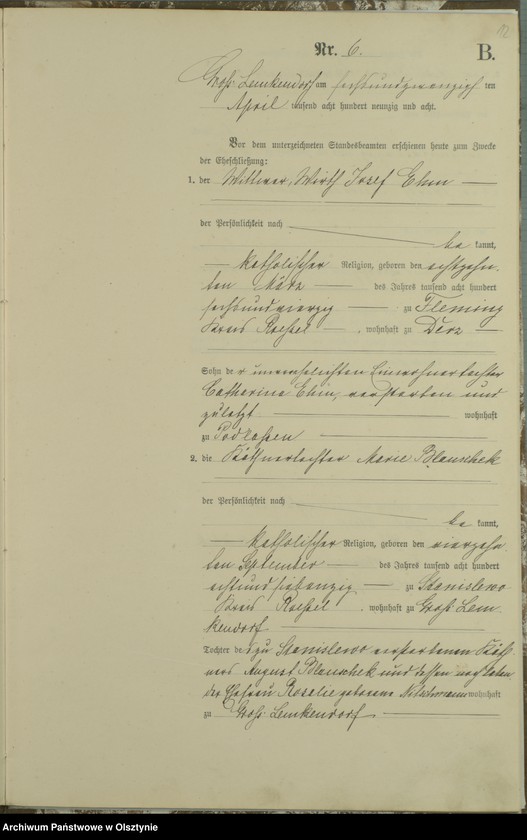 12
Nr. 6.
B.
Groß Lemkendorf am sechsundzwanzigsten
April tausend acht hundert neunzig und acht.
Vor dem unterzeichneten Standesbeamten erschienen heute zum Zwecke
der Eheschließung:
1. der Wittwer, Wirth Josef Ehm
der Persönlichkeit nach
be kannt,
katholischer Religion, geboren den achtzehn
ten März des Jahres tausend acht hundert
sechsundvierzig zu Fleming
Kreis Roessel, wohnhaft zu Derz
Sohn der unverehelichten Einwohnertochter
Catharina Ehm, verstorben und
zuletzt wohnhaft
zu Podlassen
2. die Käthnertochter Marie Blauschek
der Persönlichkeit nach
be kannt,
katholischer Religion, geboren den vierzehn
ten September des Jahres tausend acht hundert
achtundsiebenzig zu Stanislewo
Kreis Roessel, wohnhaft zu Groß Lem
kendorf
Tochter des zu Stanislewo verstorbenen Käth
ners August Blauschek und dessen
Ehefrau Rosalie geborene wohnhaft
zu Groß Lemkendorf
Archiwum Państwowe w Olsztynie